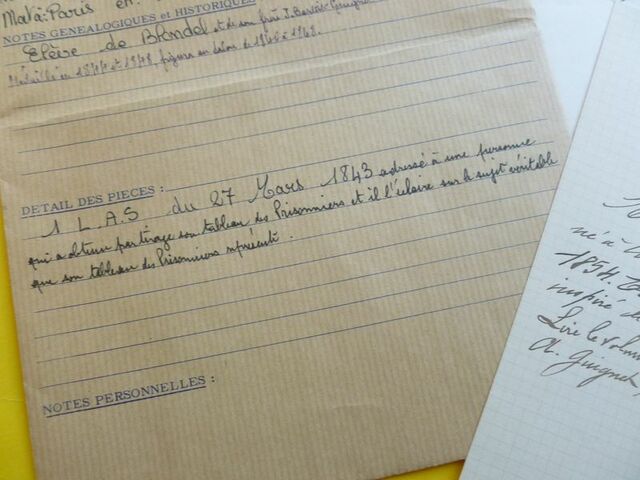 Mort à: Paris en
NOTES GENEALOGIQUES et HISTORIQUES
Elève de Blondel et de son frère J.
Médaillé en 1844 et 1848, figura au salon de à 1848.
DETAIL DES PIECES :
1 L.A.S du 27 Mars 1843 adressé à une personne
qui a obtenu par tirage son tableau des Prisonniers et il l'éclaire sur le sujet véritable
que son tableau des Prisonniers représente.
NOTES PERSONNELLES :
né à
1854.
inspiré
Lire le volume
A. Guignet